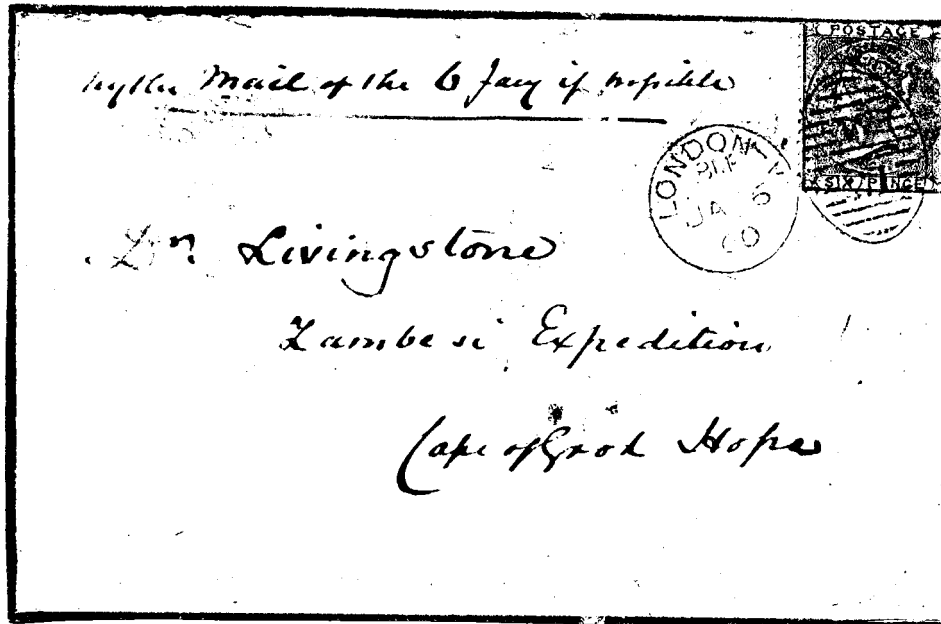 by the Mail of the 6 Jany if possible
POSTAGE
SIX PENCE
LONDON
JA 6
60
Dr Livingstone
Zambesi Expedition
Cape of Good Hope